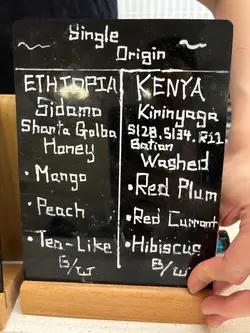 Single
Origin
ETHIOPIA
Sidamo
Shanta Golba
Honey
• Mango
• Peach
• Tea-Like
B/W
KENYA
Kirinyaga
Sl28, Sl34, R11
Batian
Washed
• Red Plum
• Red Currant
• Hibiscus
B/W